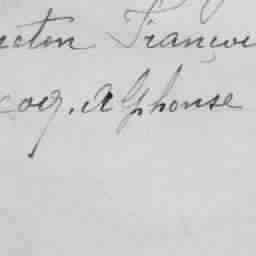 cton Françoi
coq. Alphonse